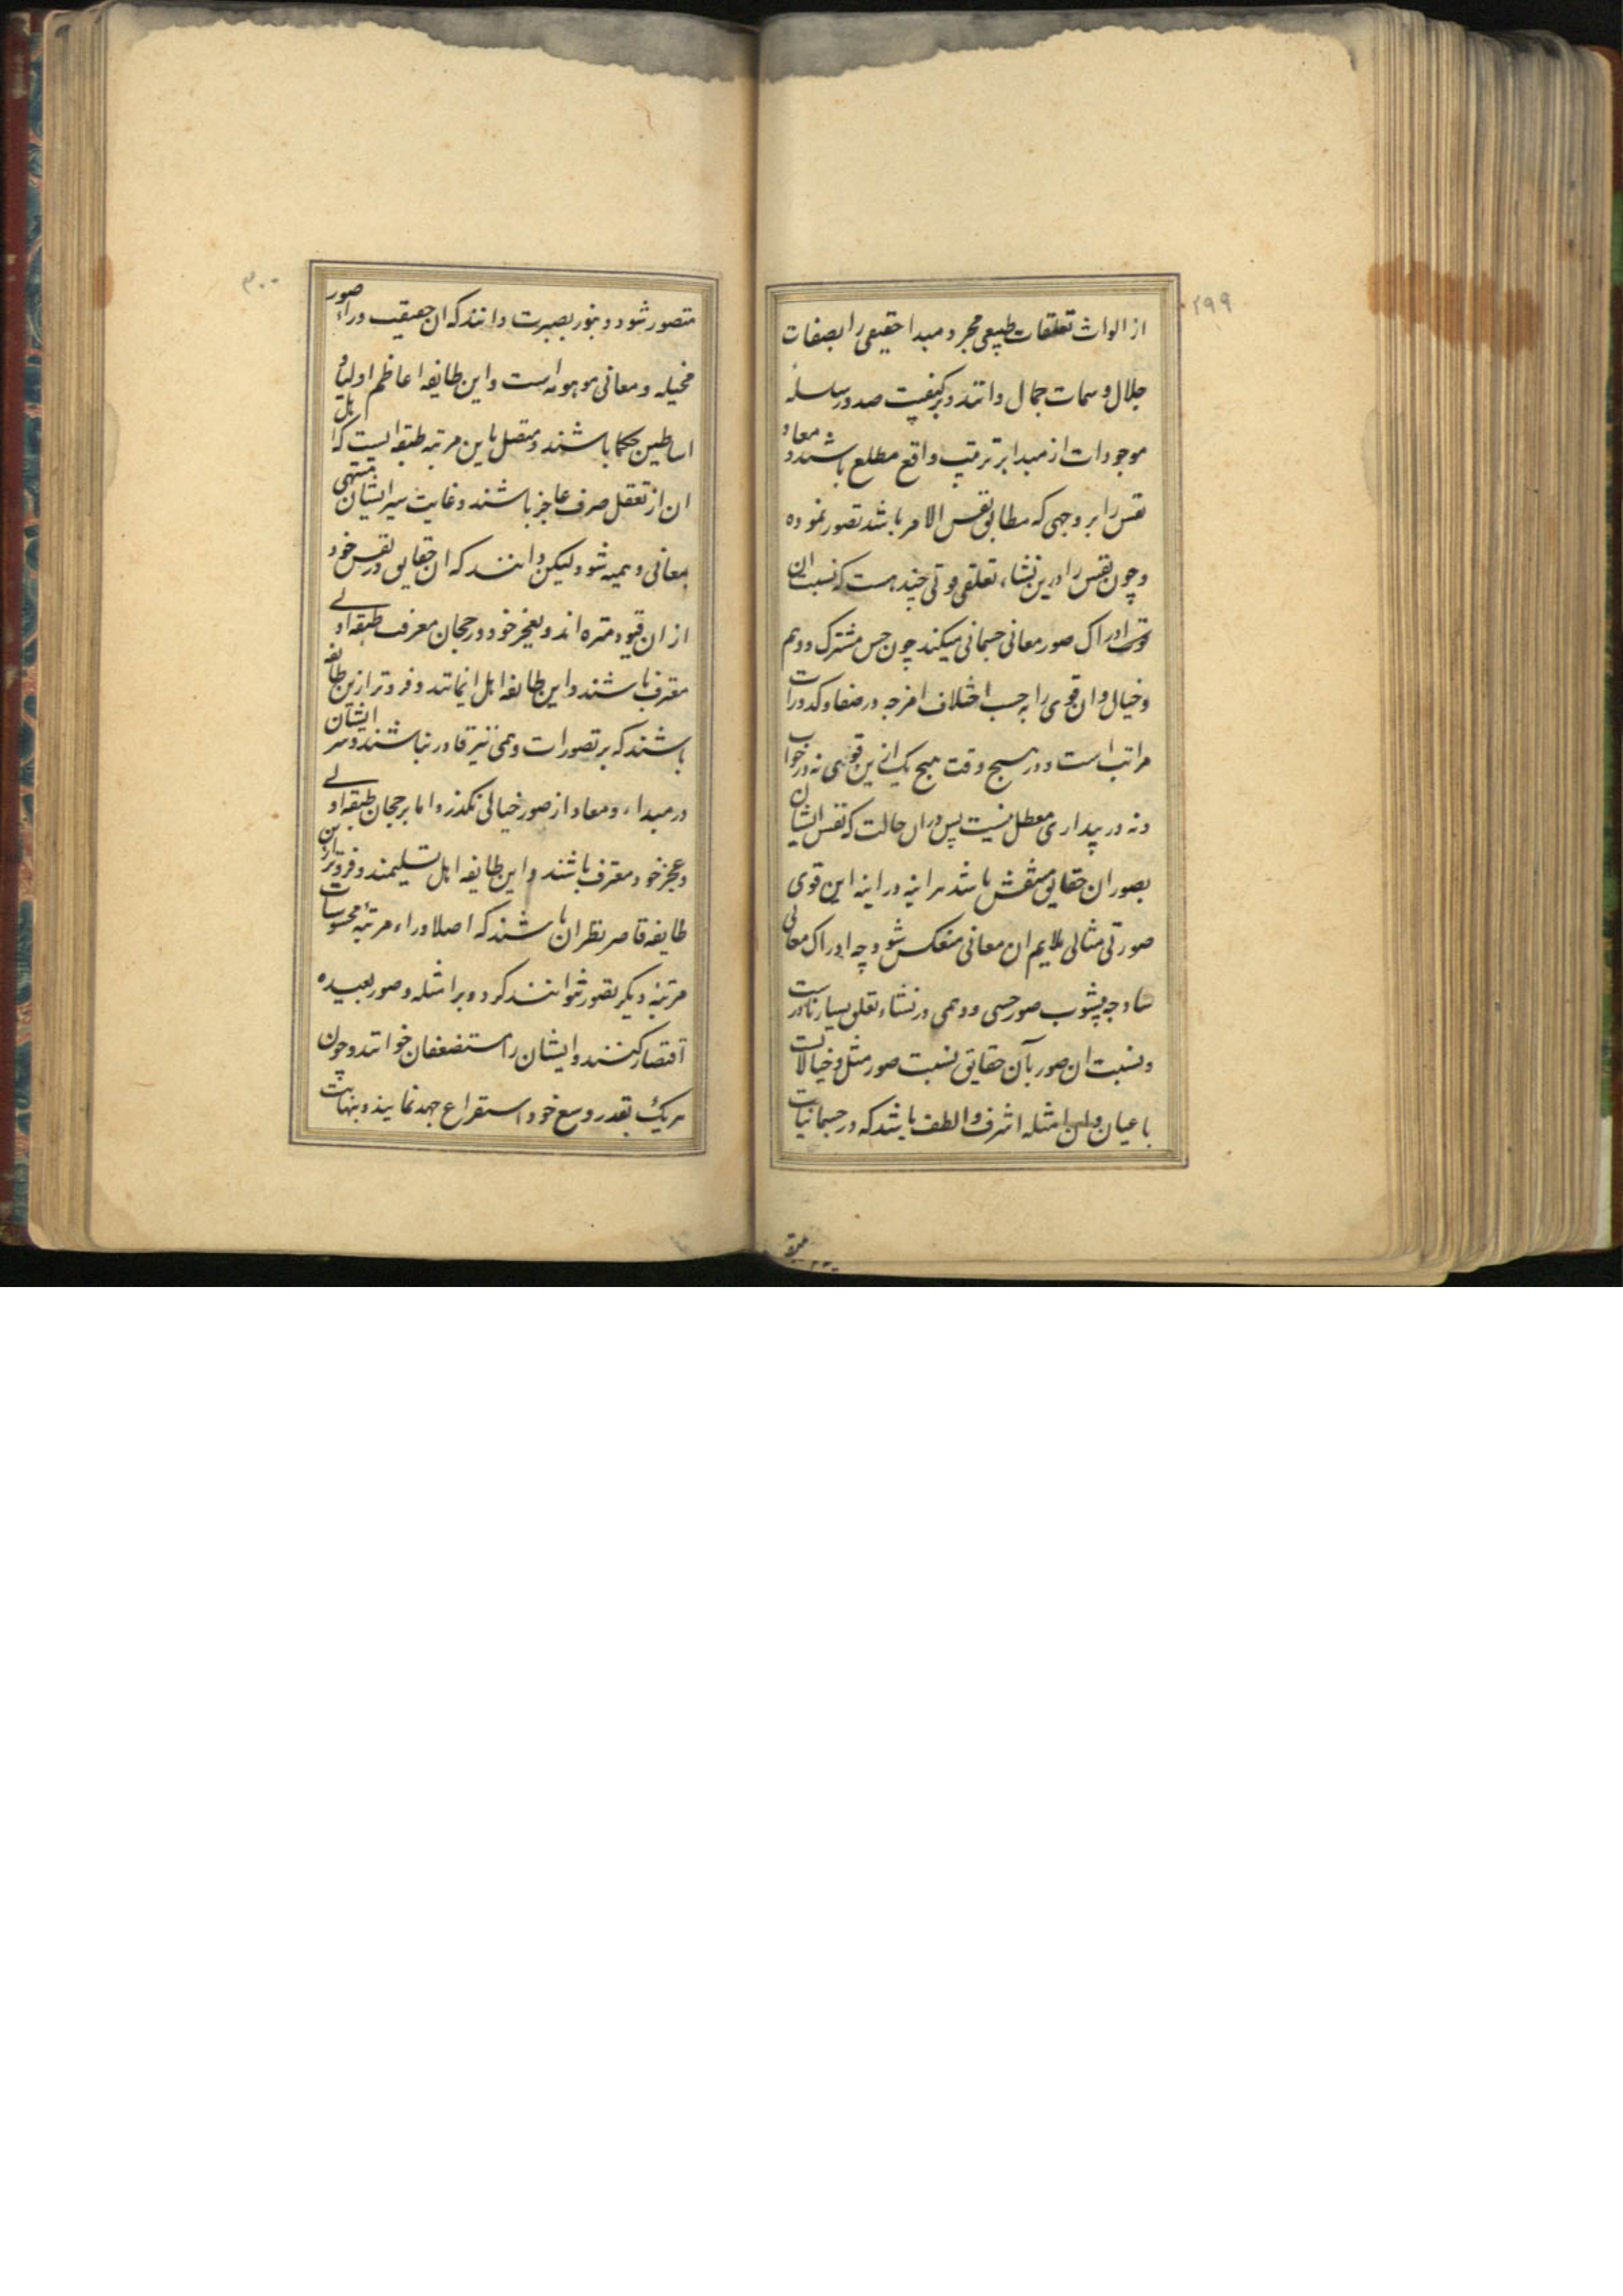 ۲۹۹
از الواث تعلقات طبیعی مجرد و مبدا حقیقی را بصفات
جلال و سمات جمال دانند و بر کیفیت صدور سلسله
موجودات از مبدا بر ترتیب واقع مطلع باشند و معاد
نفس را بر وجهی که مطابق نفس الامر باشد تصور نموده
و چون نفس را درین نشاء تعلقی و قوتی چند هست که نسبت ان
قوت ادراک صور معانی جسمانی میکند چون حس مشترک و وهم
و خیال و ان قوی را به حسب اختلاف امزجه در صفا و کدورات
مراتب است و در هیچ وقت هیچ یک ازین قوی نه در خواب
و نه در بیداری معطل نیست پس دران حالت که نفس ایشان
بصور ان حقایق منتقش باشد هر اینه در اینه این قوی
صورتی مثالی ملایم ان معانی منعکس شود چه ادراک معانی
ساده چه بشوب صور حسی و وهمی در نشاء تعلق بسیار نادرست
و نسبت ان صور بآن حقایق نسبت صور مثل و خیالاتست
باعیان و این امثله اشرف و الطف باشد که در جسمانیات
۳۰۰
متصور شود و بنور بصیرت دانند که ان حقیقت وراء صور
مخیله و معانی موهومه است و این طایفه اعاظم اولیاء و
اساطین حکما باشند و متصل باین مرتبه طبقه ایست که اهل
ان از تعقل صرف عاجز باشند و غایت سیر ایشان منتهی
بمعانی وهمیه شود لیکن دانند که ان حقایق در نفس خود
از ان قیود منزه اند و بعجز خود و رجحان معرفت طبقه اولی
معترف باشند و این طایفه اهل ایمانند و فروتر ازین طایفه
باشند که بر تصورات وهمی نیز قادر نباشند و سر ایشان
در مبداء و معاد از صور خیالی نگذرد اما برجحان طبقه اولی
و عجز خود معترف باشند و این طایفه اهل تسلیمند و فروتر ازین
طایفه قاصر نظران باشند که اصلا وراء مرتبه محسوسات
مرتبه دیگر تصور نتوانند کرد و بر امثله و صور بعیده
اقتصار کنند و ایشان را مستضعفان خوانند و چون
هریک بقدر وسع خود استفراغ جهد نمایند و بنهایت